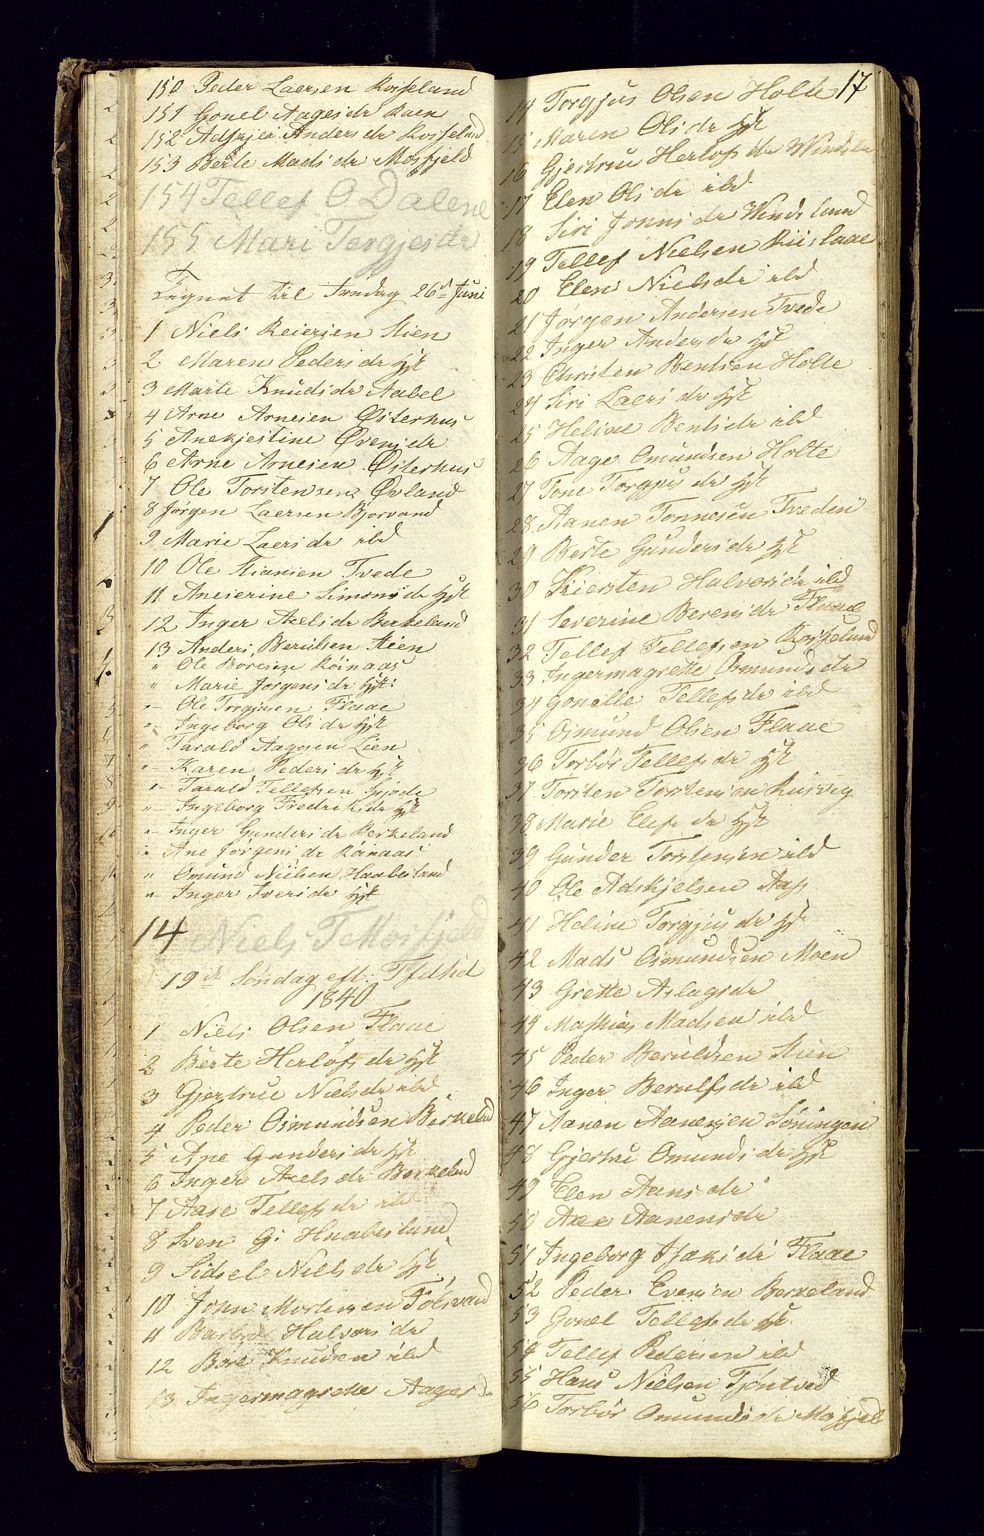 150 Peder Laersen Rosseland
151 Gonel Aagesdr Raen
152 Adsjer Andersdr Rosseland
153 Berte Madsdr Mosfjeld
154 Tellef O Dalene
155 Mari Tergjesdr
Tegnet til Søndag 26d Juni
1 Niels Reiersen Stien
2 Maren Pedersdr Hst
3 Marte Knudsdr Aabel
4 Arne Arnesen Østerhus
5 Anekjestine Øvensdr
6 Arne Arnesen Østerhus
7 Ole Torstensen Øvland
8 Jørgen Laersen Bjorvand
9 Marie Laersdr ibd
10 Ole Stiansen Tvede
11 Aneserine Simonsdr Hst
12 Inger Axelsdr Berkeland
13 Anders Berulsen Stien
" Ole Boresen Røinaas
" Marie Jorgensdr Hst
" Ole Torgjusen Flaae
" Ingeborg Olsdr Hst
" Tarald Aagesen Lien
" Karen Pedersdr Hst
" Tarald Tellefsen Gjøde
" Ingeborg Fredriksdr Hst
" Inger Gundersdr Berkeland
" Ane Jorgensdr Røinaas
" Omund Nielsen Haabesland
" Inger Iversdr Hst
14 Niels T Mosfjeld
19de Søndag eft: Tfdthd
1840
1 Niels Olsen Flaae
2 Berte Herlofsdr Hst
3 Gjertrue Nielsdr ibd
4 Peder Osmundsen Berkeland
5 Ane Gundersdr Hst
6 Inger Axelsdr Berkeland
7 Aase Tellefsdr ibd
8 Sven G: Haabesland
9 Sidsel Nielsdr Hst
10 John Mortensen Følsvand
11 Barbro Halvorsdr
12 Boe Knudsen ibd
13 Ingermagrete Aagesdr
17
14 Torgjus Olsen Holte
15 Maren Olsdr Hst
16 Gjertrue Herlofsdr Windsland
17 Elen Olsdr ibd
18 Siri Jonnsdr Windsland
19 Tellef Nielsen Riislaae
20 Elen Nielsdr ibd
21 Jorgen Andersen Tvede
22 Inger Andersdr Hst
23 Christen Bentsen Holte
24 Siri Laersdr Hst
25 Heline Bentsdr ibd
26 Aage Omundsen Holte
27 Tone Torgjusdr Hst
28 Aanen Tonnesen Tveden
29 Berte Gundersdr Hst
30 Kiersten Halvorsdr ibd
31 Severine Berensdr Flaae
32 Tellef Tellefsen Rosseland
33 Ingermagrette Osmundsdr
34 Gonille Tellefsdr ibd
35 Osmund Olsen Flaae
36 Torbør Tellefsdr Hst
37 Torsten Torstensen Risvig
38 Marie Elefsdr Hst
39 Gunder Torstensen ibd
40 Ole Adskjelsen Aas
41 Heline Torgjusdr Hst
42 Mads Osmundsen Moen
43 Grette Aslagsdr
44 Mathias Madsen ibd
45 Peder Beruldsen Stien
46 Inger Berulfsdr ibd
47 Aanen Aanensen Søningen
48 Gjertru Omundsdr Hst
49 Elen Aansdr
50 Axe Aanensdr
51 Ingeborg Isaksdr Flaae
52 Peder Evensen Berkeland
53 Gonel Tellefsdr Hst
54 Tellef Pedersen ibd
55 Hans Nielsen Tjøntved
56 Torbør Omundsdr Mosfjeld